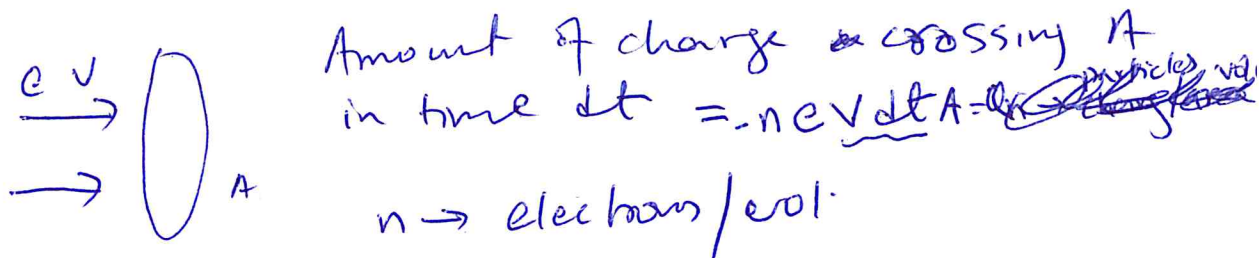 Amount of charge crossing A
e v
in time dt = -neVdtA =
A
n → electrons/vol.